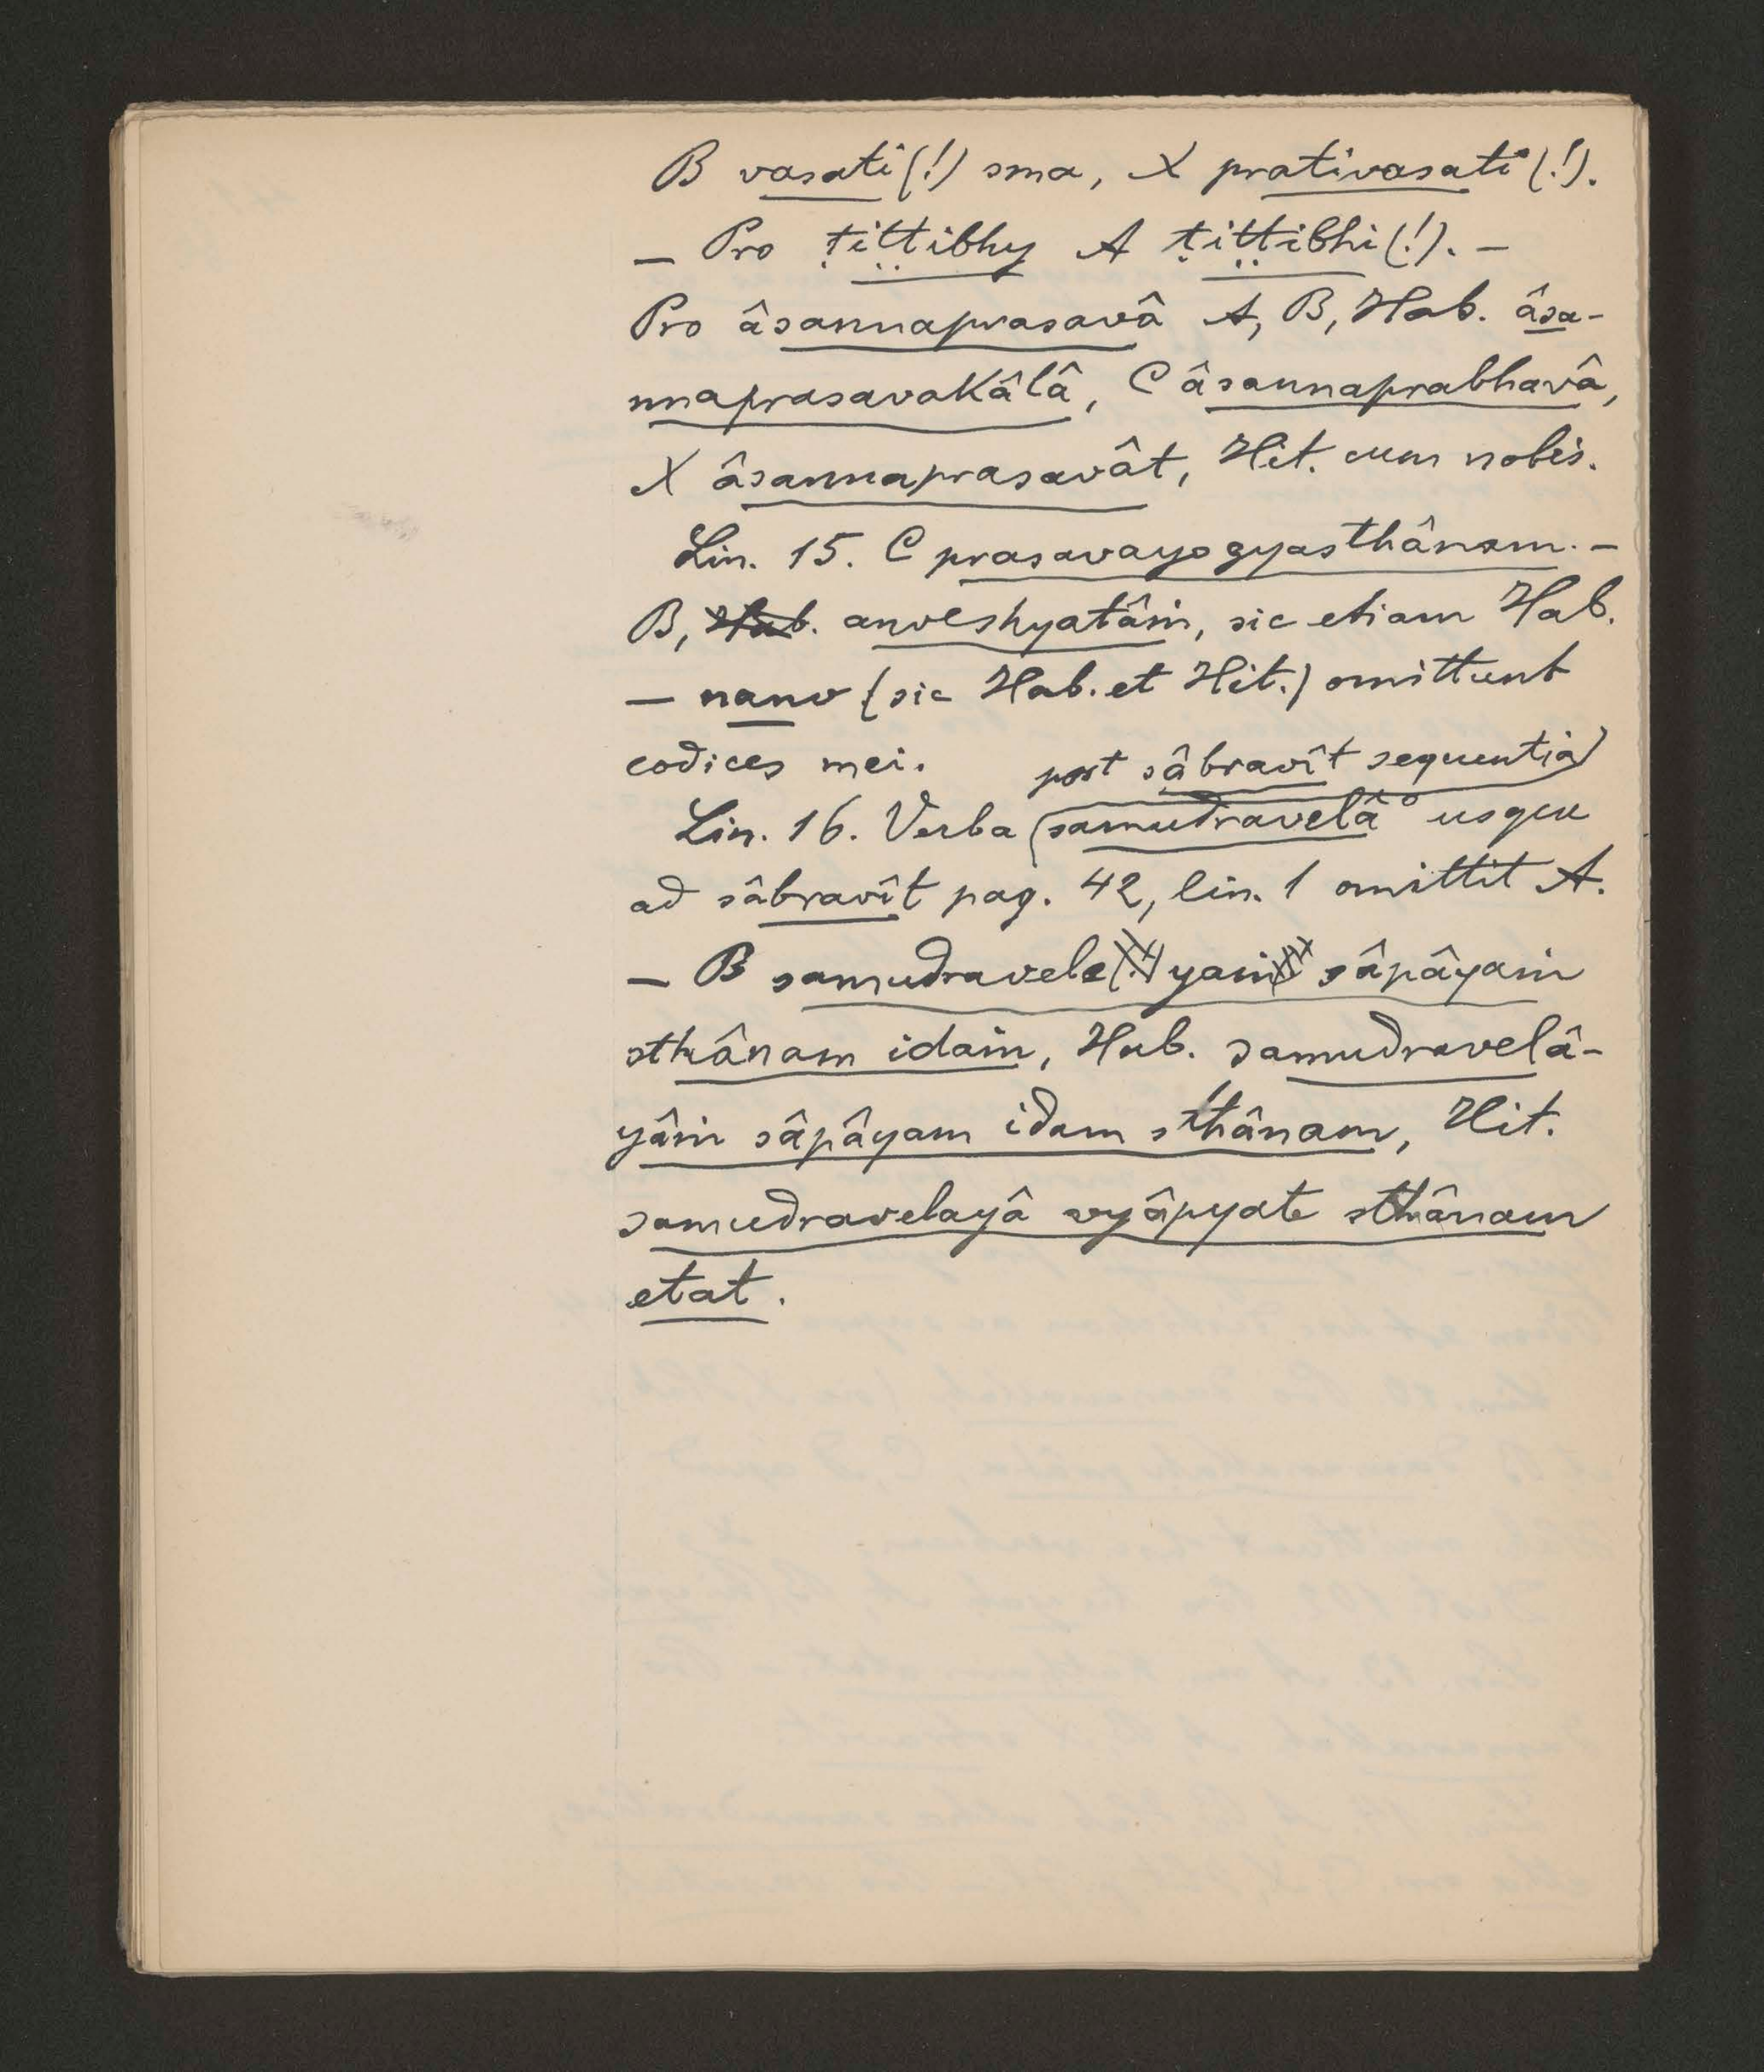 B vasati (!) sma, X prativasati (!).
— Pro ṭiṭṭibhy A ṭiṭṭibhi (!). —
Pro âsannaprasavâ A, B, Hab. âsa-
nnaprasavakâlâ, C âsannaprabhavâ,
X âsannaprasavât, Hit. cum nobis.
Lin. 15. C prasavayogyasthânam. —
B, Hab. anveshyatâṁ, sic etiam Hab.
— nanv (sic Hab. et Hit.) omittunt
codices mei.
post sâbravît sequentia
Lin. 16. Verba (samudravelâ° usque
ad sâbravît pag. 42, lin. 1 omittit A.
— B samudravele(!) yaṁ sâpâyaṁ
sthânam idaṁ, Hab. samudravelâ-
yâṁ sâpâyam idam sthânam, Hit.
samudravelayâ vyâpyate sthânam
etat.